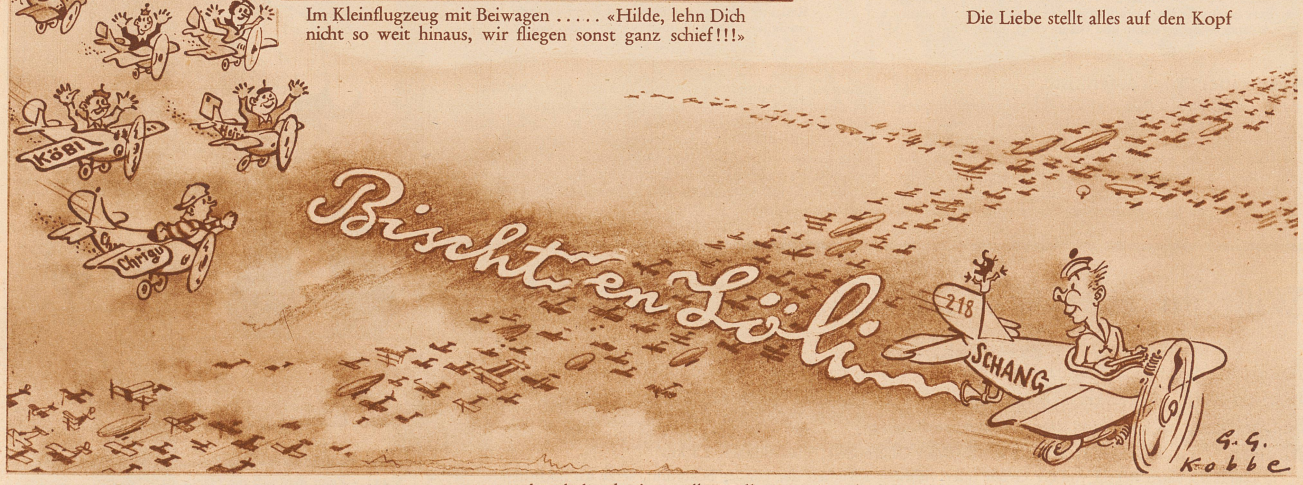 Im Kleinflugzeug mit Beiwagen ..... «Hilde, lehn Dich
nicht so weit hinaus, wir fliegen sonst ganz schief!!!»
Die Liebe stellt alles auf den Kopf
KÖBI
Chrigu
Bischt en Löli
218
SCHANG
G. G.
Kobbe